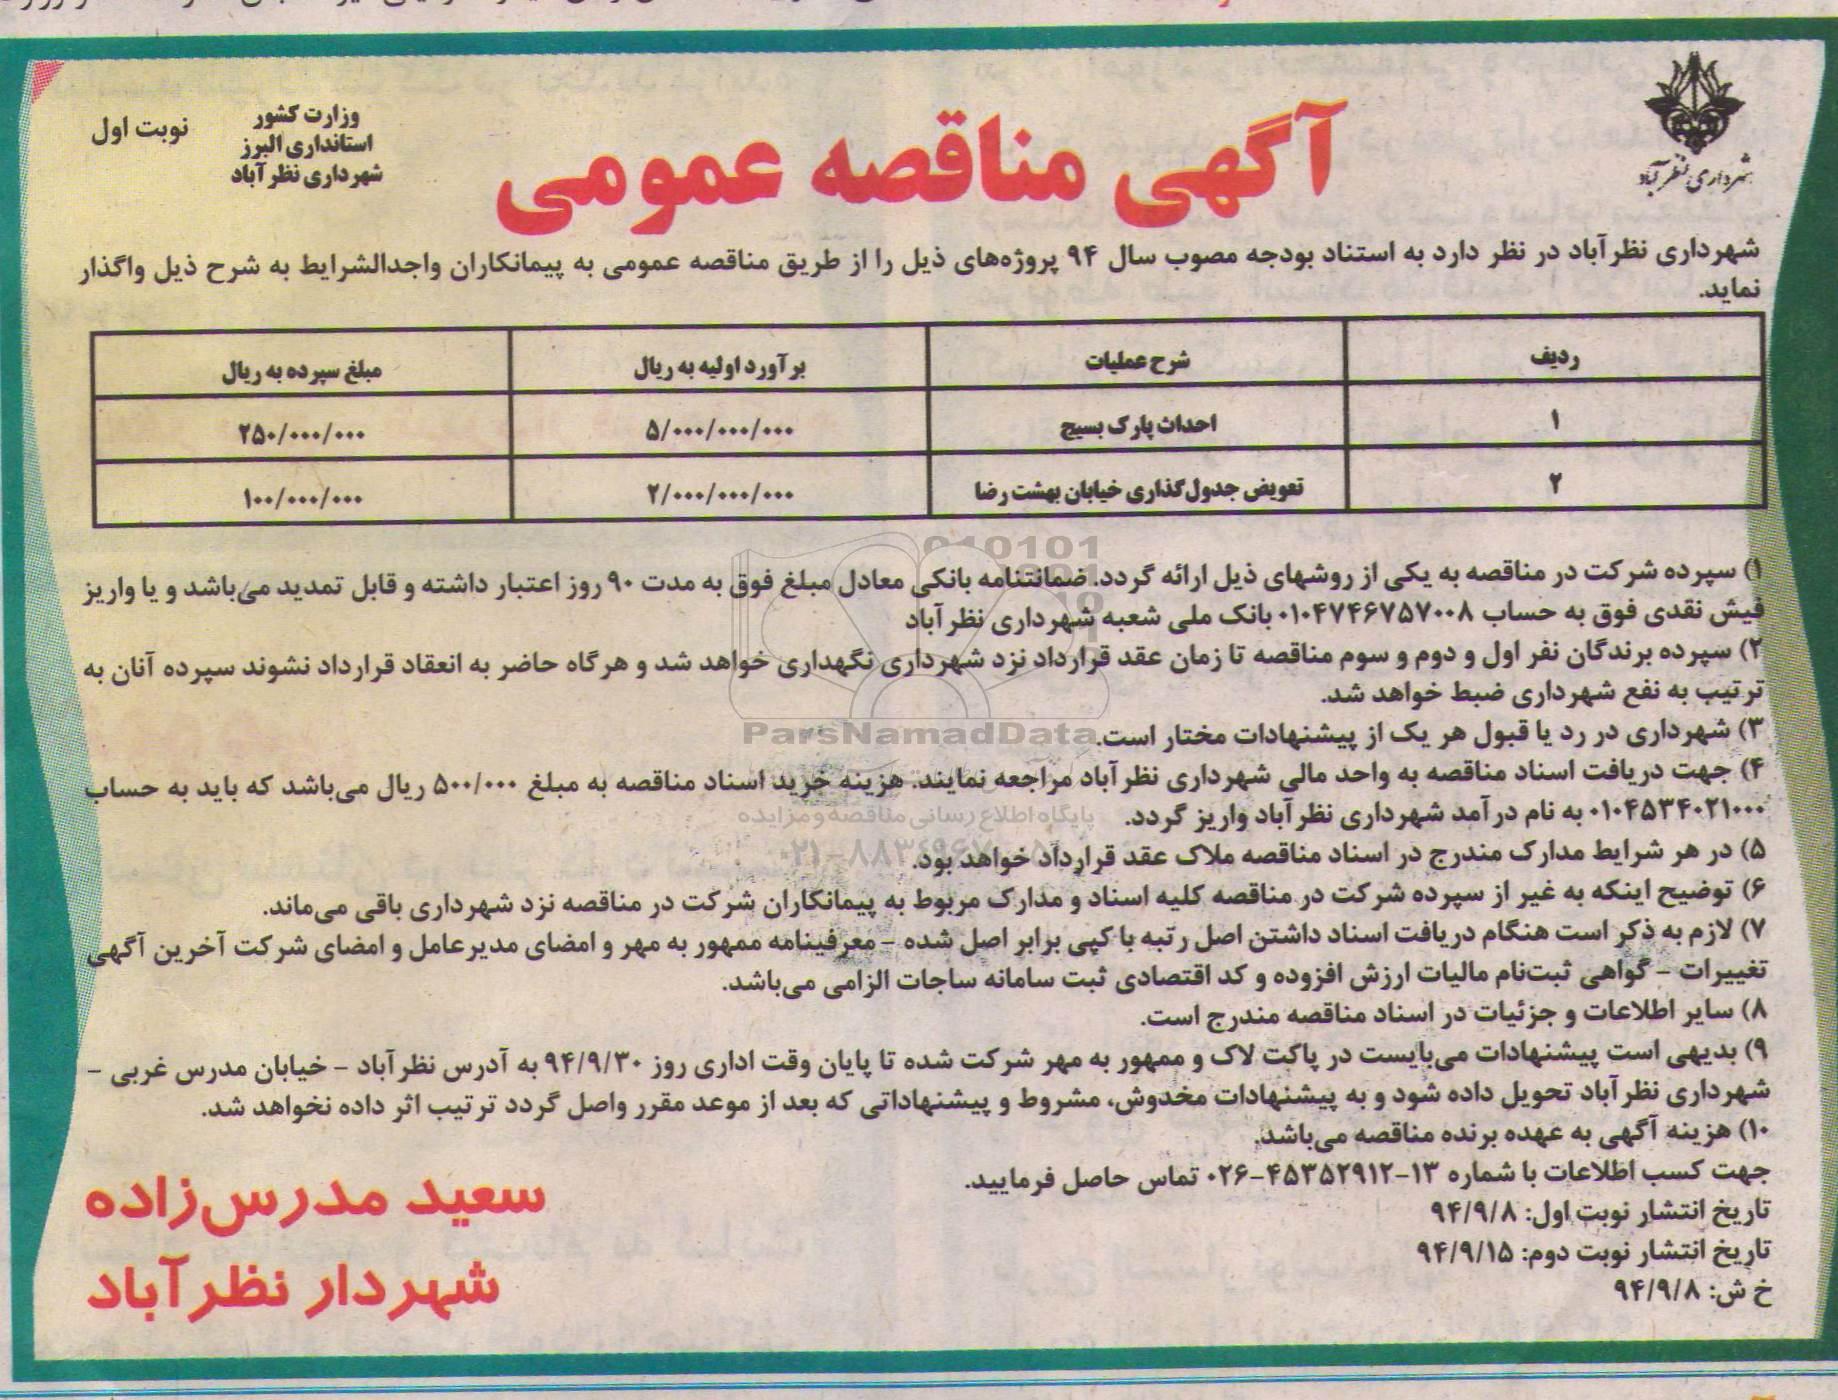 شهرداری نظرآباد
آگهی مناقصه عمومی
وزارت کشور
استانداری البرز
شهرداری نظرآباد
نوبت اول
شهرداری نظرآباد در نظر دارد به استناد بودجه مصوب سال ۹۴ پروژه‌های ذیل را از طریق مناقصه عمومی به پیمانکاران واجدالشرایط به شرح ذیل واگذار
نماید.
ردیف شرح عملیات برآورد اولیه به ریال مبلغ سپرده به ریال
۱ احداث پارک بسیج ۵/۰۰۰/۰۰۰/۰۰۰ ۲۵۰/۰۰۰/۰۰۰
۲ تعویض جدول‌گذاری خیابان بهشت رضا ۲/۰۰۰/۰۰۰/۰۰۰ ۱۰۰/۰۰۰/۰۰۰
۱) سپرده شرکت در مناقصه به یکی از روشهای ذیل ارائه گردد. ضمانتنامه بانکی معادل مبلغ فوق به مدت ۹۰ روز اعتبار داشته و قابل تمدید می‌باشد و یا واریز
فیش نقدی فوق به حساب ۰۱۰۴۷۴۶۷۵۷۰۰۸ بانک ملی شعبه شهرداری نظرآباد
۲) سپرده برندگان نفر اول و دوم و سوم مناقصه تا زمان عقد قرارداد نزد شهرداری نگهداری خواهد شد و هرگاه حاضر به انعقاد قرارداد نشوند سپرده آنان به
ترتیب به نفع شهرداری ضبط خواهد شد.
۳) شهرداری در رد یا قبول هر یک از پیشنهادات مختار است.
۴) جهت دریافت اسناد مناقصه به واحد مالی شهرداری نظرآباد مراجعه نمایند. هزینه خرید اسناد مناقصه به مبلغ ۵۰۰/۰۰۰ ریال می‌باشد که باید به حساب
۰۱۰۴۵۳۴۰۲۱۰۰۰ به نام درآمد شهرداری نظرآباد واریز گردد.
۵) در هر شرایط مدارک مندرج در اسناد مناقصه ملاک عقد قرارداد خواهد بود.
۶) توضیح اینکه به غیر از سپرده شرکت در مناقصه کلیه اسناد و مدارک مربوط به پیمانکاران شرکت در مناقصه نزد شهرداری باقی می‌ماند.
۷) لازم به ذکر است هنگام دریافت اسناد داشتن اصل رتبه با کپی برابر اصل شده - معرفینامه ممهور به مهر و امضای مدیرعامل و امضای شرکت آخرین آگهی
تغییرات - گواهی ثبت‌نام مالیات ارزش افزوده و کد اقتصادی ثبت سامانه ساجات الزامی می‌باشد.
۸) سایر اطلاعات و جزئیات در اسناد مناقصه مندرج است.
۹) بدیهی است پیشنهادات می‌بایست در پاکت لاک و ممهور به مهر شرکت شده تا پایان وقت اداری روز ۹۴/۹/۳۰ به آدرس نظرآباد - خیابان مدرس غربی -
شهرداری نظرآباد تحویل داده شود و به پیشنهادات مخدوش، مشروط و پیشنهاداتی که بعد از موعد مقرر واصل گردد ترتیب اثر داده نخواهد شد.
۱۰) هزینه آگهی به عهده برنده مناقصه می‌باشد.
جهت کسب اطلاعات با شماره ۱۳-۴۵۳۵۲۹۱۲-۰۲۶ تماس حاصل فرمایید.
تاریخ انتشار نوبت اول: ۹۴/۹/۸
تاریخ انتشار نوبت دوم: ۹۴/۹/۱۵
خ ش: ۹۴/۹/۸
سعید مدرس‌زاده
شهردار نظرآباد
ParsNamadData
پایگاه اطلاع رسانی مناقصه و مزایده